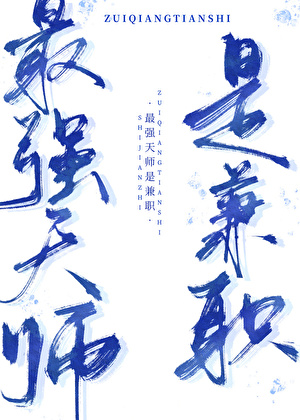 ZUIQIANGTIANSHI
最强天师
ZUIQIANGTIANSHI
·最强天师是兼职·
SHIJIANZHI
是兼职